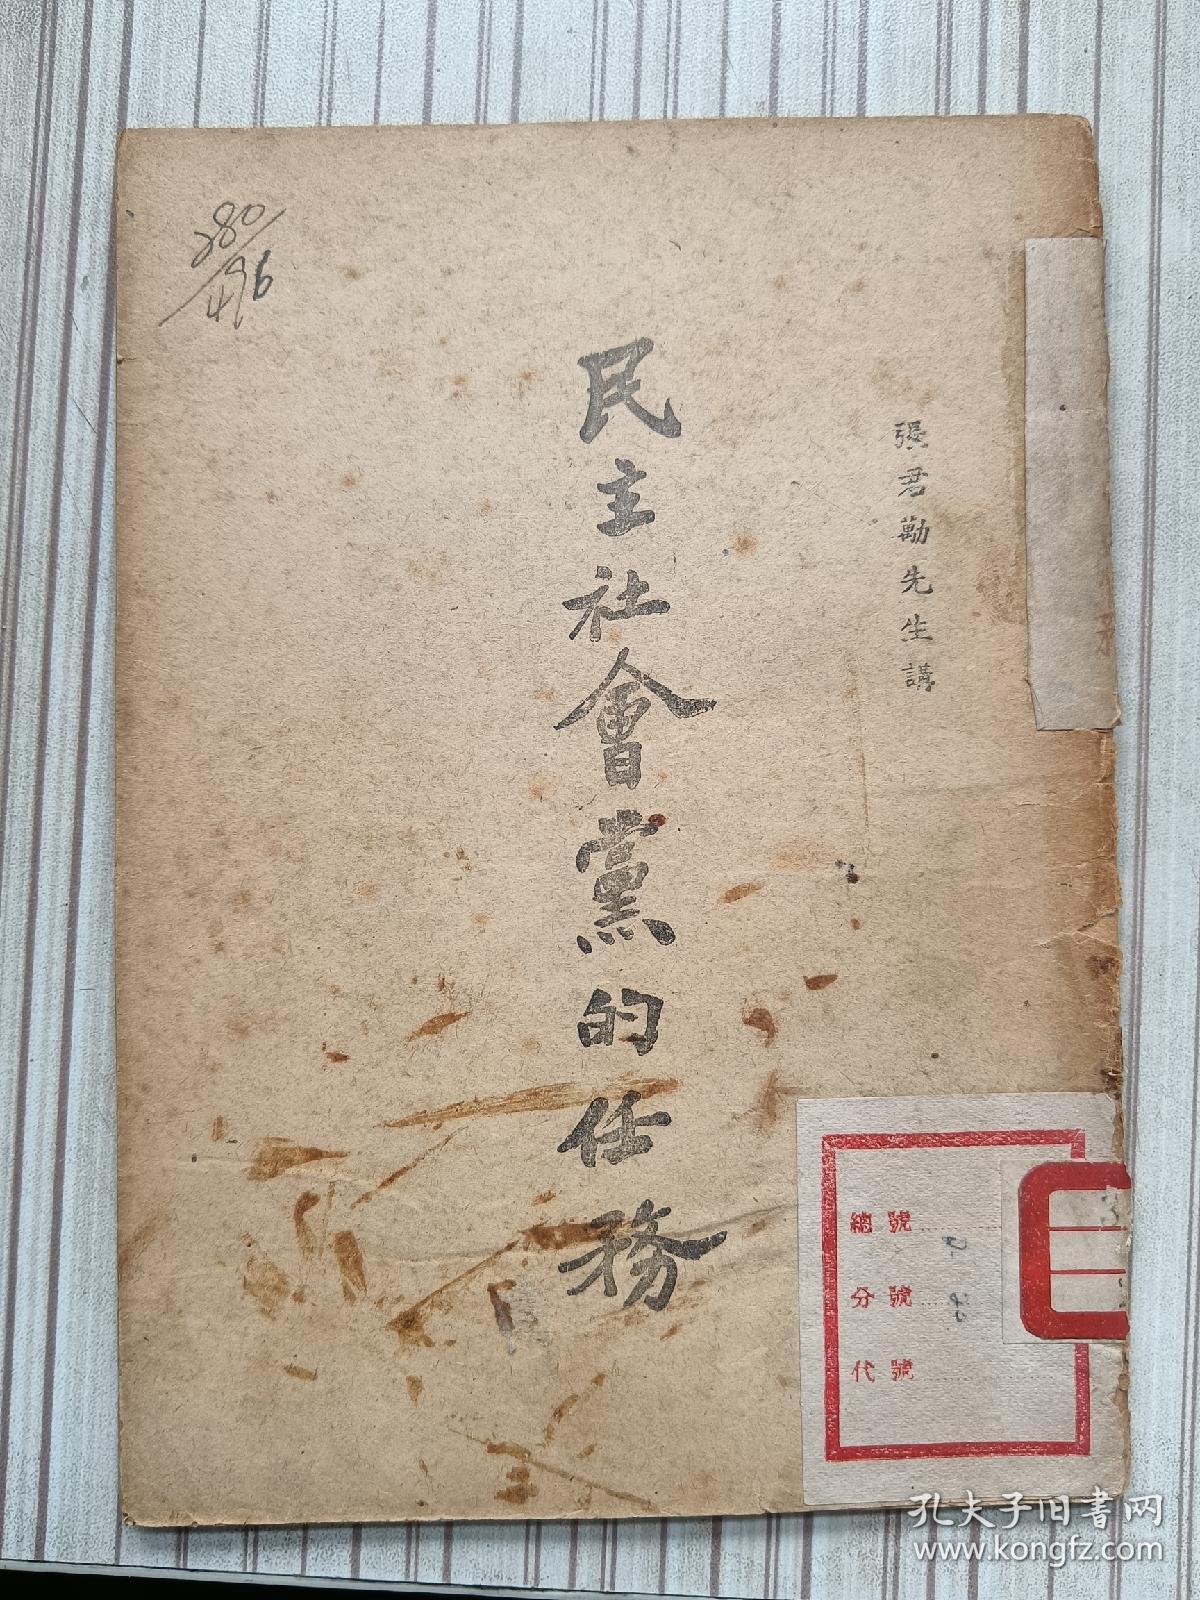 張君勱先生講
民主社會黨的任務
280
496
總號
分號
代號
孔夫子旧書网
www.kongfz.com